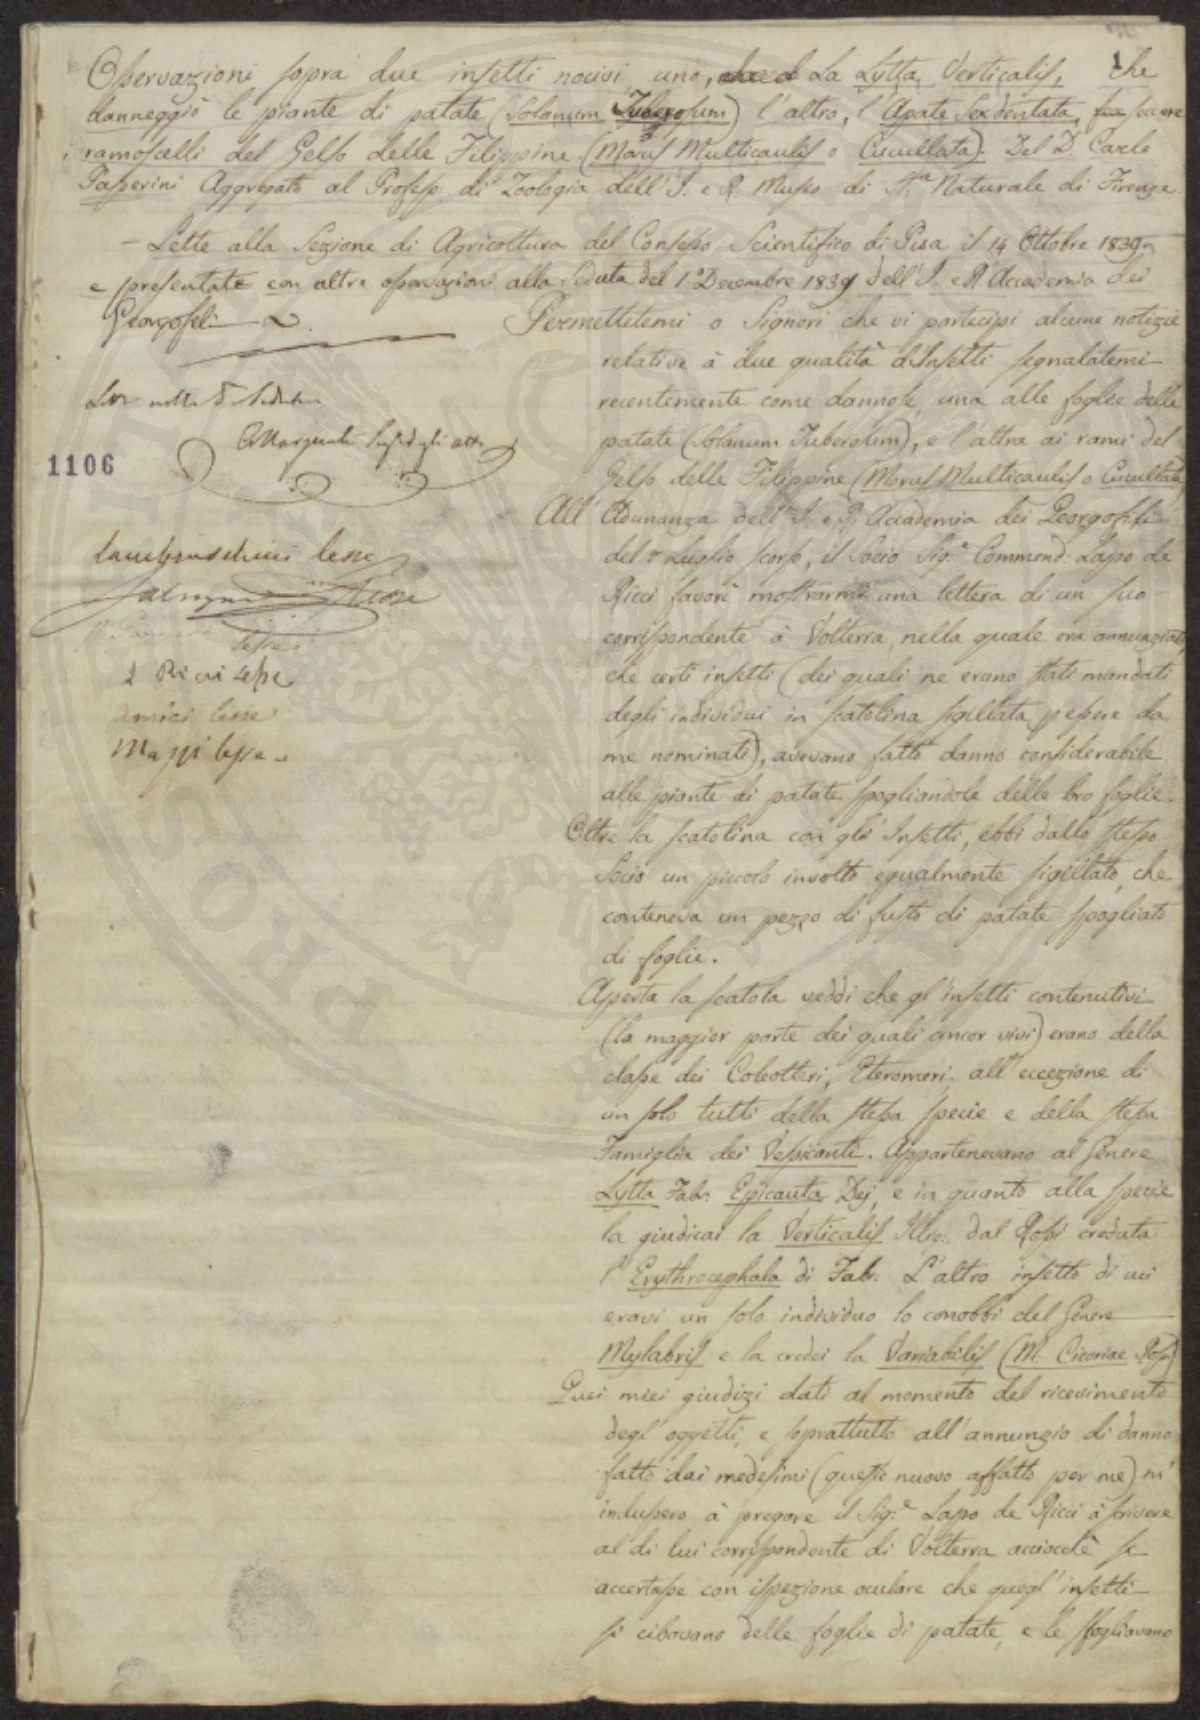 1
Osservazioni sopra due insetti nocivi uno, che è La Lytta Verticalis, che
danneggiò le piante di patate (Solanum Tuberosum) l'altro, l'Apate Sexdentata,
i ramoscelli del Gelso delle Filippine (Morus Multicaulis o Cucullata). Del D. Carlo
Passerini Aggregato al Profess. di Zoologia dell'I. e R. Museo di St.a Naturale di Firenze
– Lette alla Sezione di Agricoltura del Consesso Scientifico di Pisa il 14 Ottobre 1839
e presentate con altre osservazioni alla Seduta del 1. Decembre 1839 dell'I. e R. Accademia dei
Georgofili
Permettetemi o Signori che vi partecipi alcune notizie
relative à due qualità d'Insetti segnalatemi
recentemente come dannose, una alle foglie delle
patate (Solanum Tuberosum), e l'altra ai rami del
Gelso delle Filippine (Morus Multicaulis o Cucullata)
All'Adunanza dell'I. e R. Accademia dei Georgofili
del 7 Luglio scorso, il Socio Sig.e Commend. Lapo de
Ricci favorì mostrarmi una lettera di un suo
corrispondente à Volterra, nella quale era annunziato,
che certi insetti (dei quali ne erano stati mandati
degli individui in scatolina sigillata p essere da
me nominati), avevano fatto danno considerabile
alle piante di patate spogliandole delle loro foglie.
Oltre la scatolina con gli Insetti, ebbi dallo stesso
Socio un piccolo involto egualmente sigillato, che
conteneva un pezzo di fusto di patate spogliato
di foglie.
Aperta la scatola veddi che gl'insetti contenutivi
(la maggior parte dei quali ancor vivi) erano della
classe dei Coleotteri, Eteromeri, all'eccezione di
un solo tutti della stessa specie e della stessa
Famiglia dei Vessicanti. Appartenevano al Genere
Lytta Fabr. Epicauta Dej, e in quanto alla specie
la giudicai la Verticalis Illig. dal Rossi creduta
l'Erythrocephala di Fabr. L'altro insetto di cui
eravi un solo individuo lo conobbi del Genere
Mylabris e la credei la Variabilis (M. Cicoriae Rossi)
Quei miei giudizi dati al momento del ricevimento
degl'oggetti, e soprattutto all'annunzio di danno
fatto dai medesimi (questo nuovo affatto per me) m'
indussero à pregare il Sig.e Lapo de Ricci à scrivere
al di lui corrispondente di Volterra acciocchè si
accertasse con ispezione oculare che quegl'insetti
si cibavano delle foglie di patate, e le sfogliavano
1106
Lambruschini lesse
lesse
L Ricci lesse
Amici lesse
Mazzi lesse